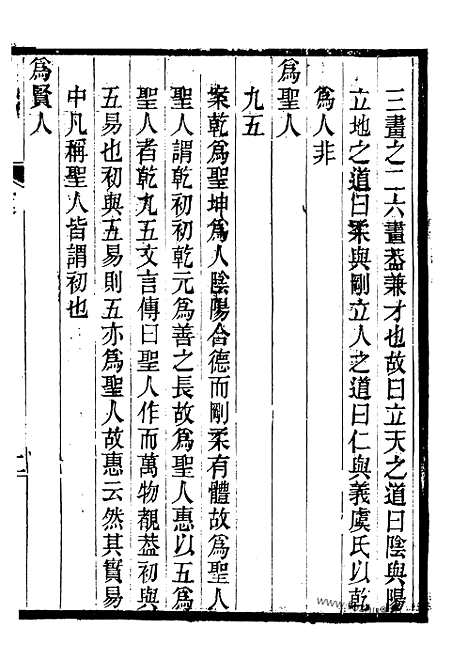 三畫之二六畫蓋兼才也故曰立天之道曰陰與陽
立地之道曰柔與剛立人之道曰仁與義虞氏以乾
爲人非
爲聖人
九五
案乾爲聖坤爲人陰陽合德而剛柔有體故爲聖人
聖人謂乾初初乾元爲善之長故爲聖人惠以五爲
聖人者乾九五文言傳曰聖人作而萬物覩葢初與
五易也初與五易則五亦爲聖人故惠云然其實易
中凡稱聖人皆謂初也
爲賢人